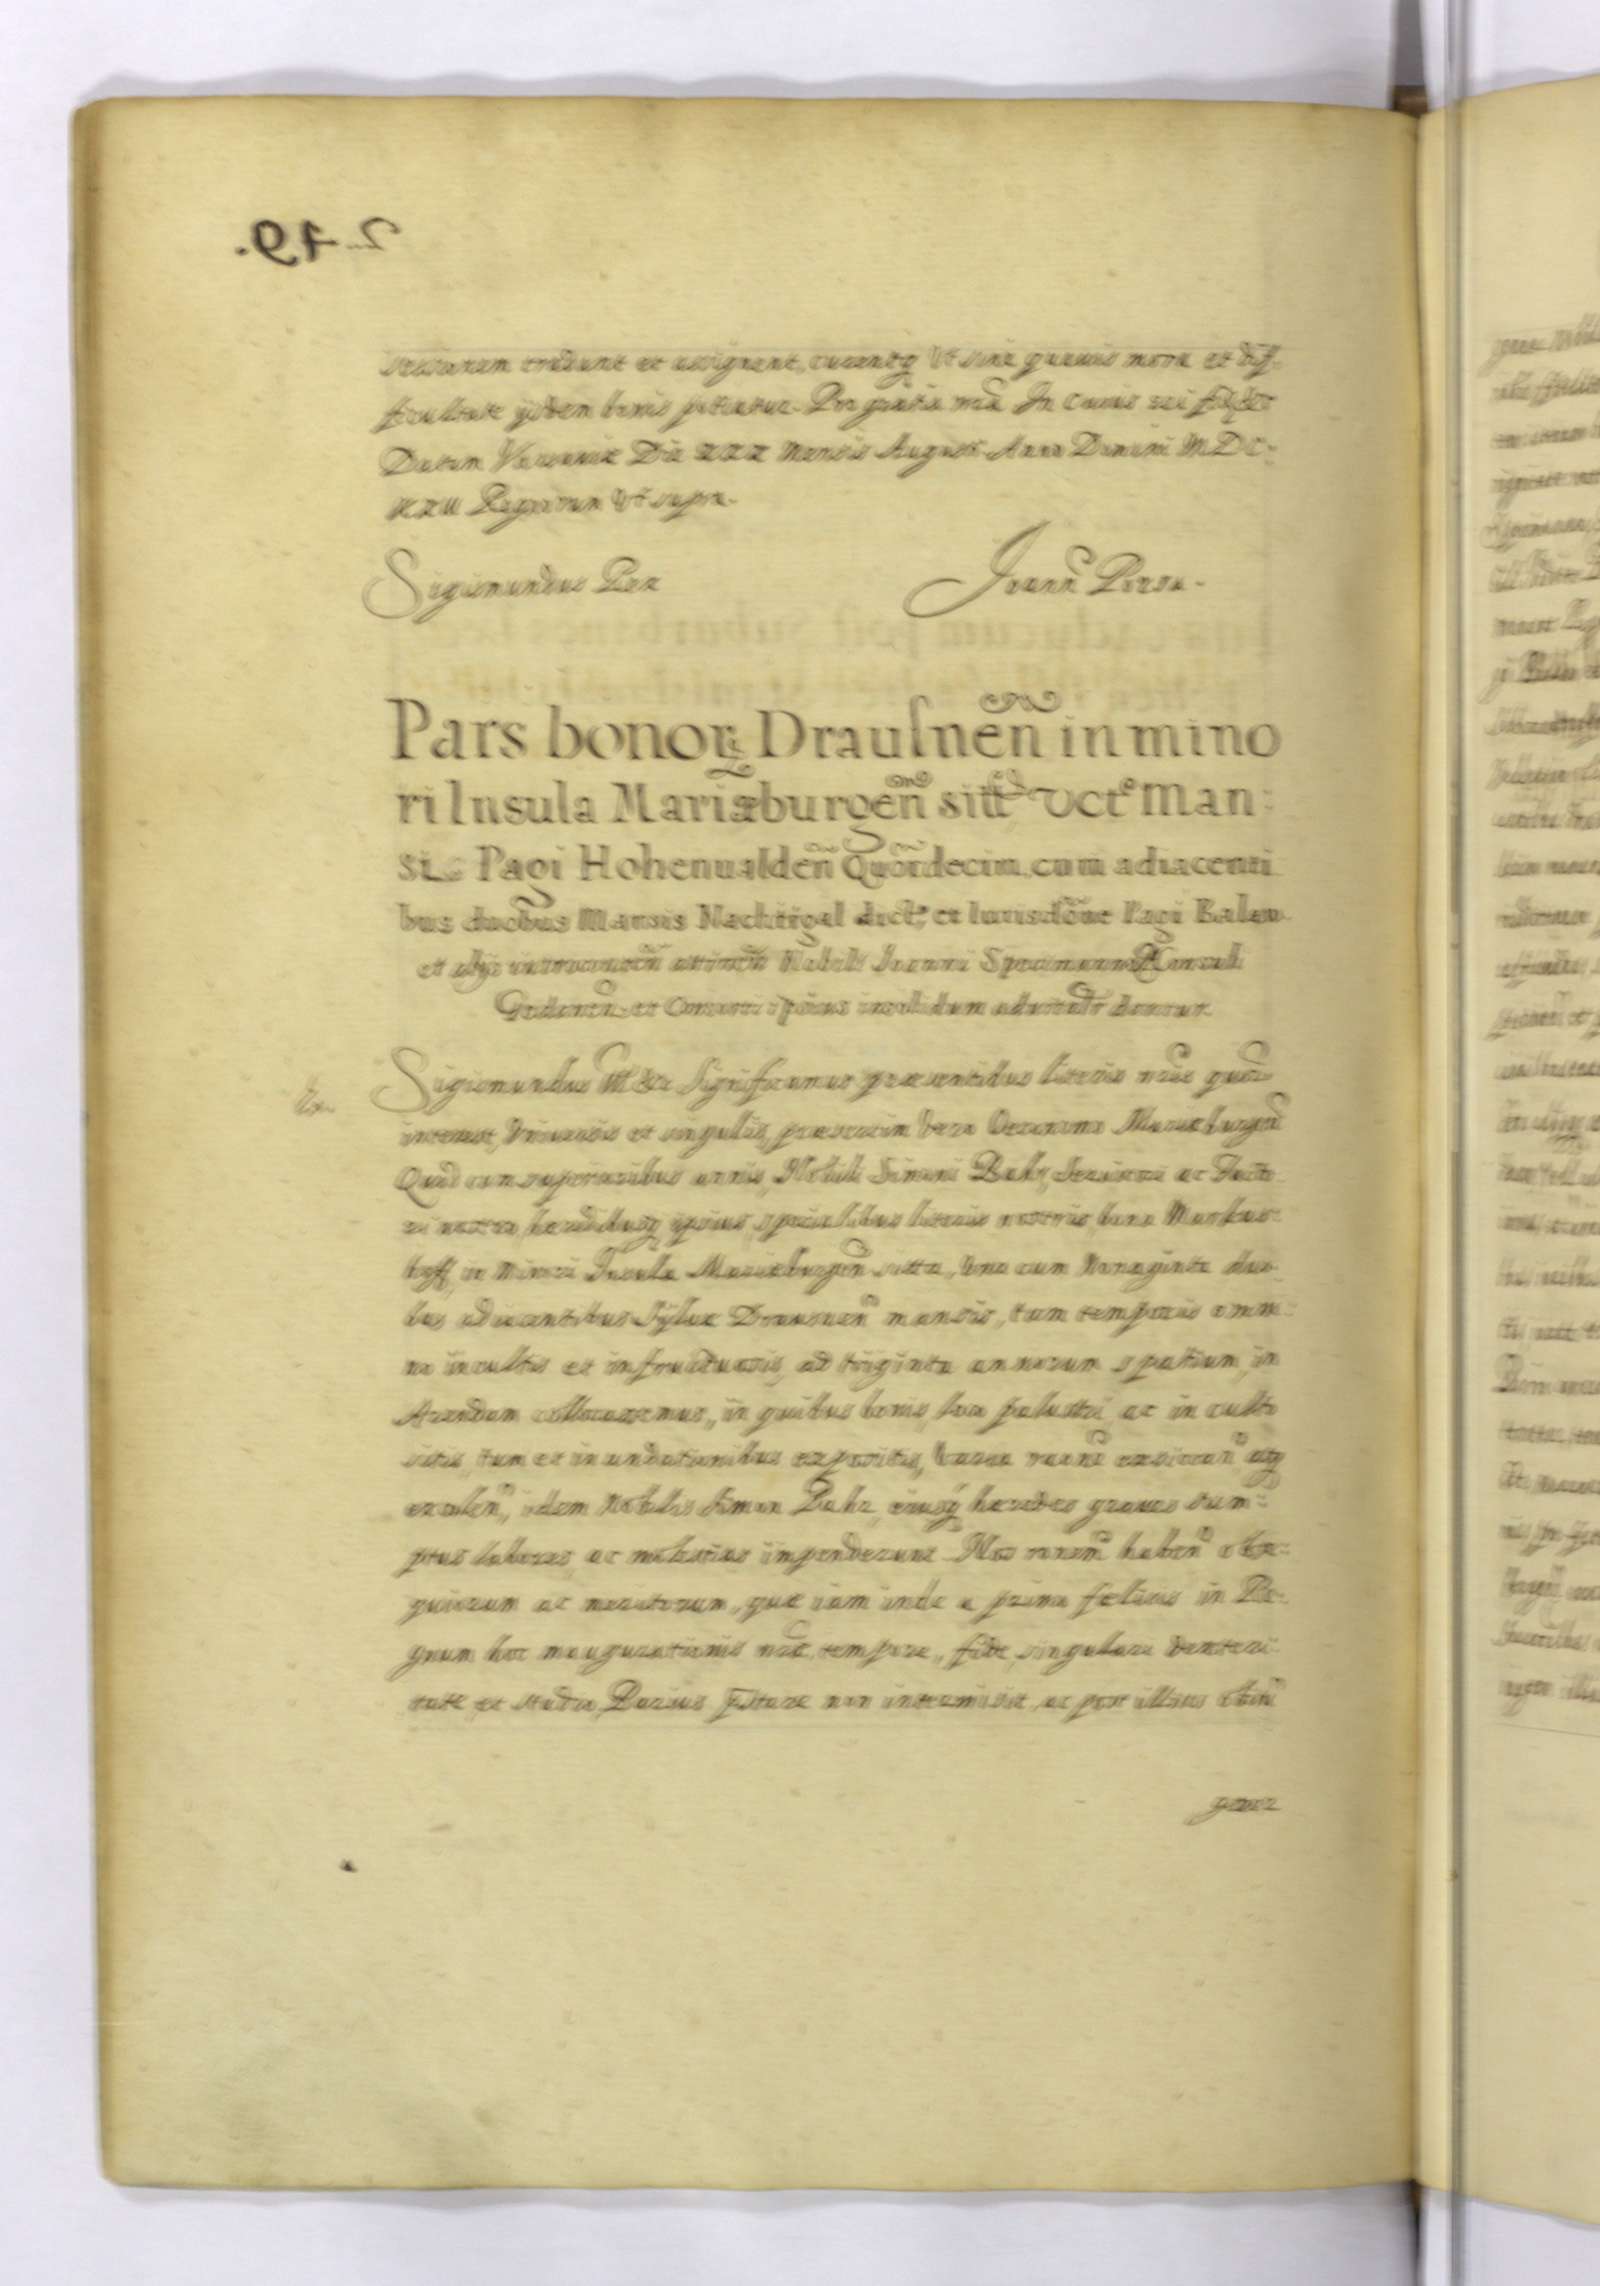 sessionem tradant et assignent, curentq Vt sine quavis mora et dif-
ficultate ijsdem bonis potiatur. Pro gratia nrã. In Cuius rei fidem
Datum Varsaviæ Die XXX Mensis Augusti Anno Domini MDC-
XXII Regnorum Vt supra.
Sigismundus Rex
Joann
Pars bonorꝝ Drausnen̄ in mino
ri Insula Mariæburgen̄ sitt Vcte Man:
si Pagi Hohenualden̄ Quordecim cum adiacenti
bus duobus Mansis Nachtigal dict, et Iurisdone Pagi Balew
et alijs Nobili Joanni Specimanno Consuli
Gedanen et Consorti ipsius insolidum aduitatr dantur
Sigismundus III &c Significamus præsentibus literis nris quor
interest, Vniuersis et singulis, præsertim Vero Oeconomo Mariæburgen
Quod cum superioribus annis, Nobili Simoni Bahr, Seruitori ac Facto
ri nostro, hæredibusq ipsius, specialibus literis nostris, bona Markus-
hoff, in Minori Insula Mariæburgen sitta, Vna cum Nonaginta duo-
bus adiacentibus Syluæ Drausnen mansis, tum temporis omni-
no incultis et infructuosis, ad triginta annorum spatium, in
Arendam collocassemus, in quibus bonis, loco palustri, ac in culto
sitis, tum et inundationibus expositis, exsiccan atq
excolen, idem Nobilis Simon Bahr, eiusq hæredes graues sum-
ptus labores, ac molestias impenderunt. Nos rationem haben obse-
quiorum ac meritorum, quæ iam inde a primo felicis in Re-
gnum hoc inaugurationis nræ tempore, fide, singulari dexteri-
tate et studio Barius præstare non intermisit, ac post illius obitū